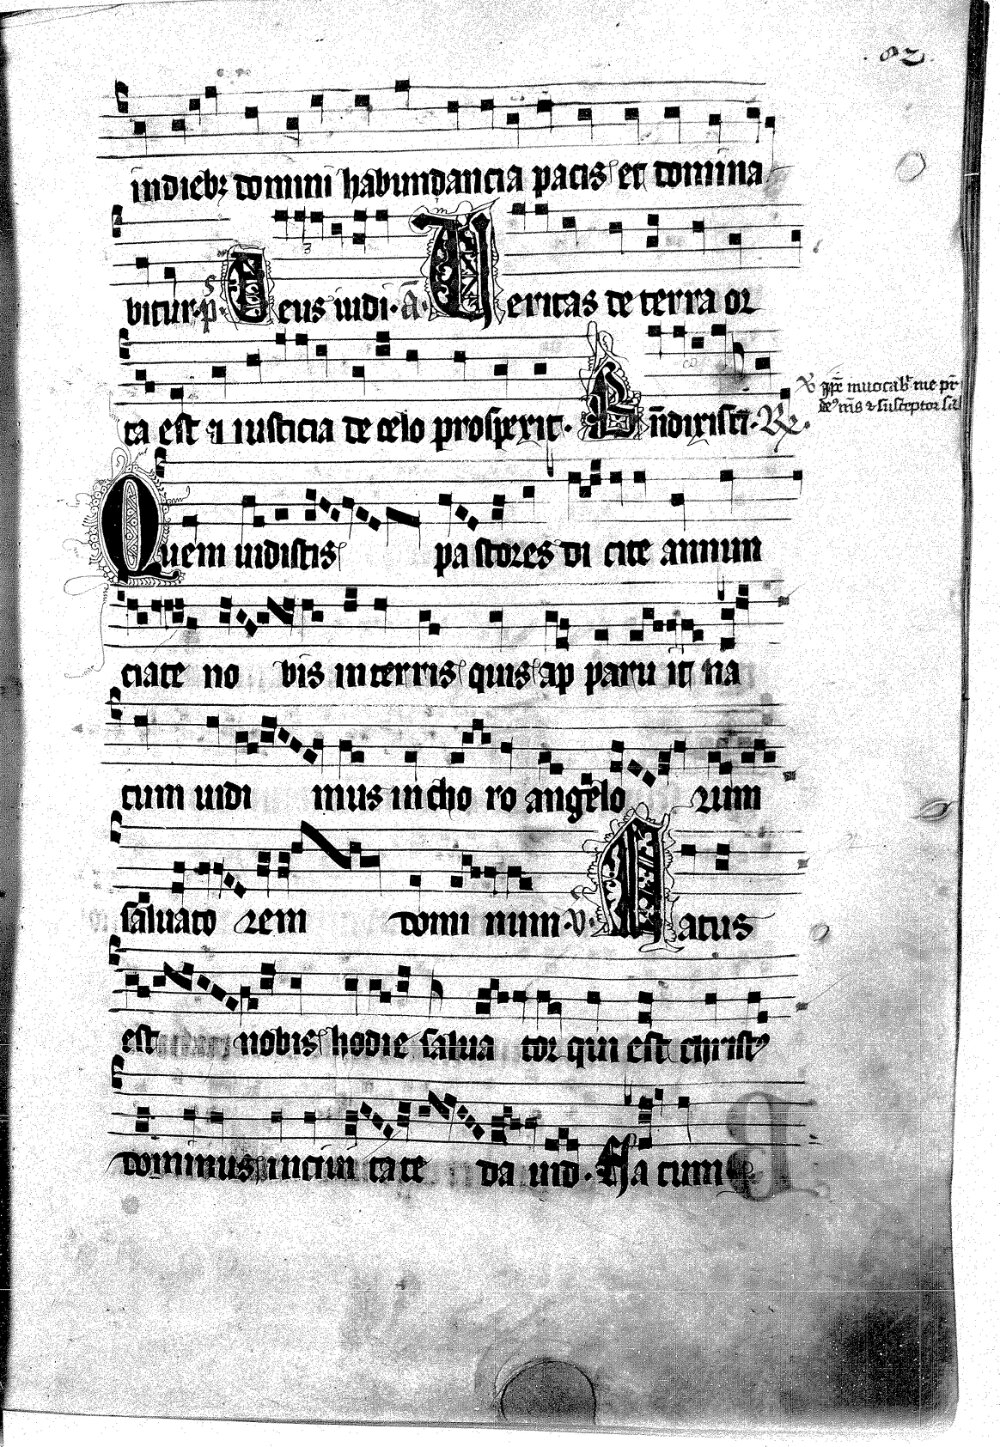 82
indiebꝫ domini habundancia pacis et domina
bitur · p̄s · Deus iudi · ā · Ueritas de terra or
ta est ⁊ iusticia de celo prospexit · Bn̄dixisti · ℟ ·
Quem uidistis pa stores di cite annun
ciate no bis in terris quis ap paru it na
tum uidi mus in cho ro angelo rum
saluato rem domi num · v · Natus
est nobis hodie salua tor qui est christꝰ
dominus in ciui tate da uid · Na tum
℣ Ip̄e inuocabᵗ me pr̄
me
⁊ susceptor